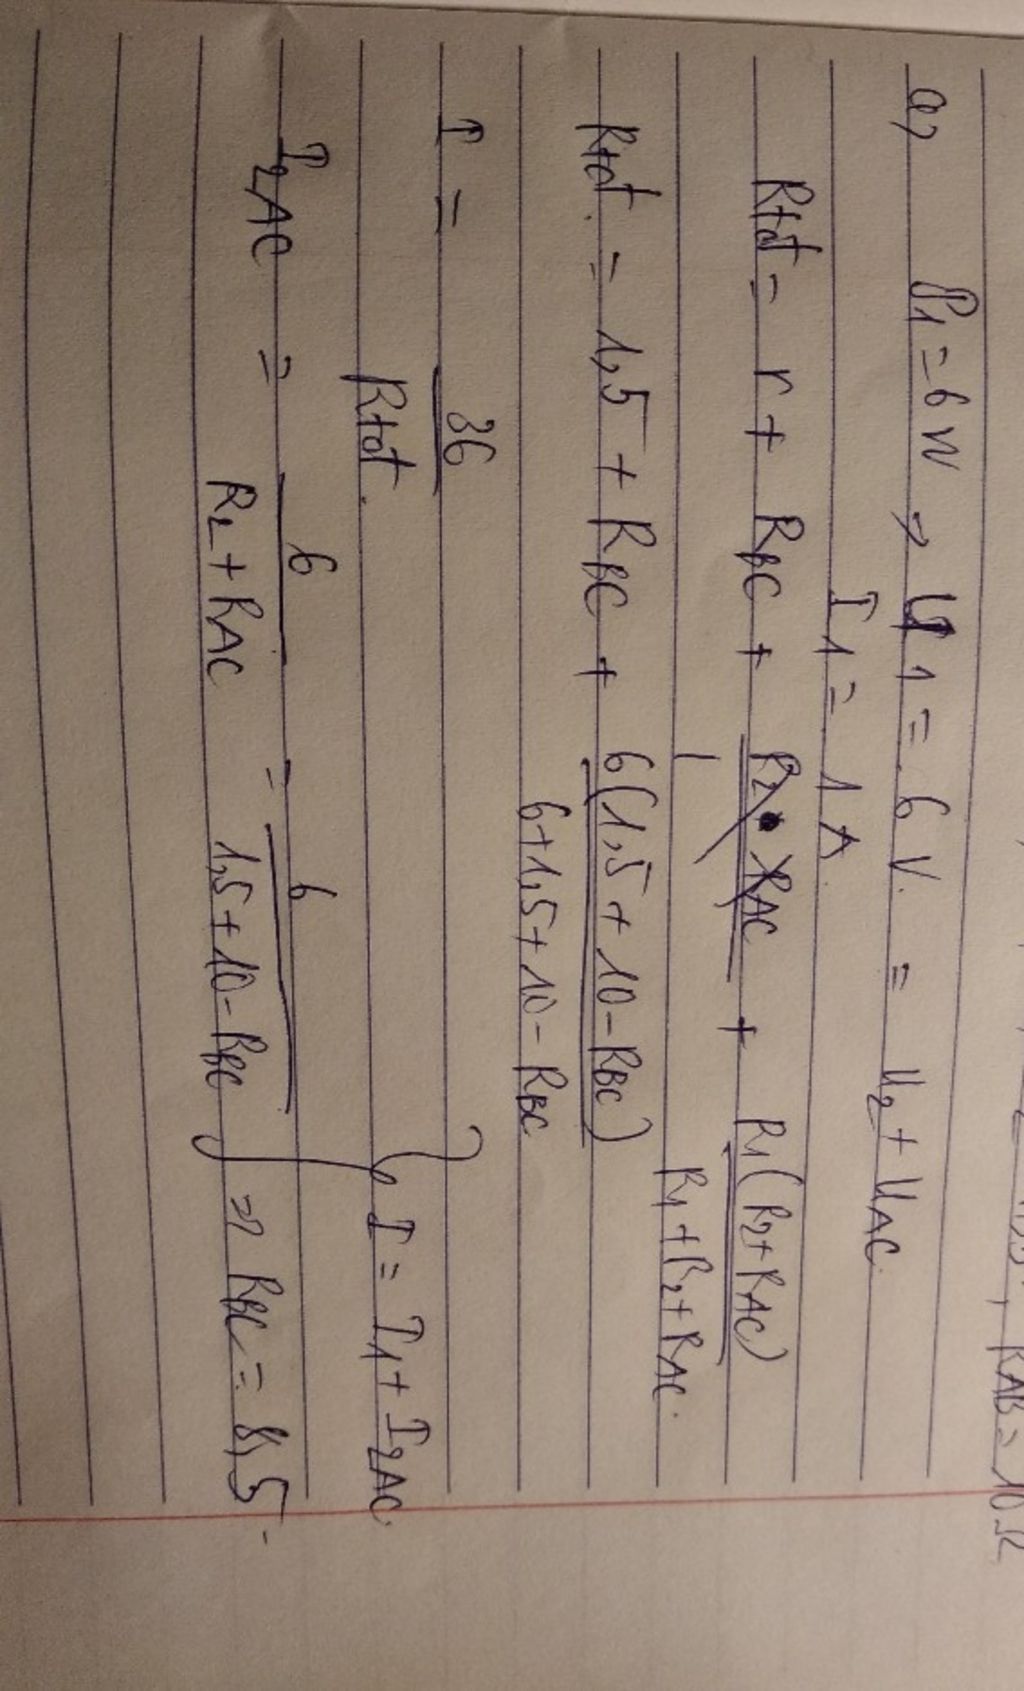 RAB = 10Ω
a, P1 = 6 W ⇒ U1 = 6 V. = U2 + UAC.
I1 = 1 A
Rtot = r + RBC + R1(R2+RAC) / R1+R2+RAC.
Rtot. = 1,5 + RBC + 6(1,5 + 10 - RBC) / 6+1,5+10 - RBC
I = 36 / Rtot.
I = I1 + I2AC.
I2AC = 6 / R2 + RAC = 6 / 1,5+10 - RBC ⇒ RBC = 8,5.